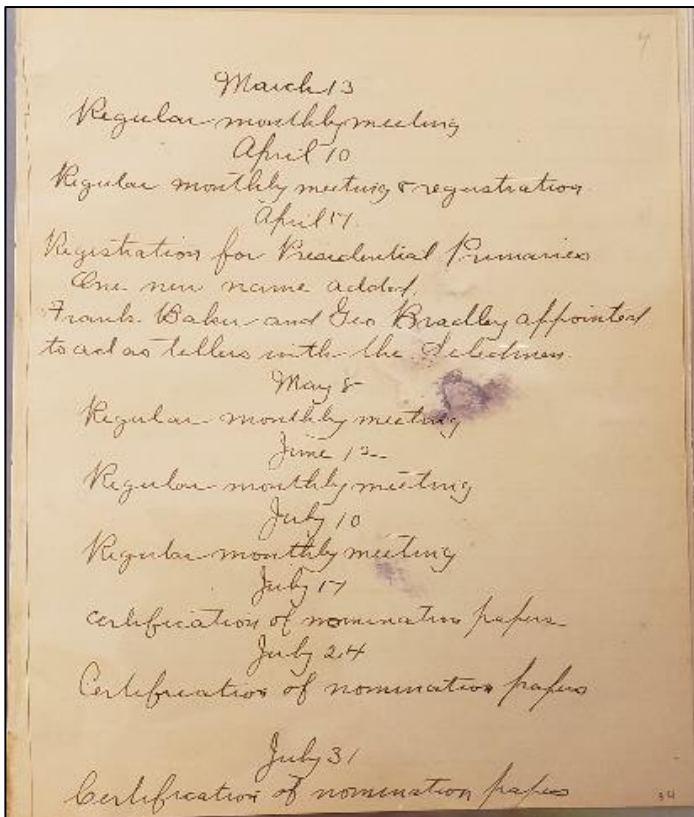 4
March 13
Regular monthly meeting
April 10
Regular monthly meeting & registration
April 17
Registration for Presidential Primaries
One new name added.
Frank Baker and Geo Bradley appointed
to act as tellers with the Selectmen.
May 8
Regular monthly meeting
June 12
Regular monthly meeting
July 10
Regular monthly meeting
July 17
Certification of nomination papers
July 24
Certification of nomination papers
July 31
Certification of nomination papers
34